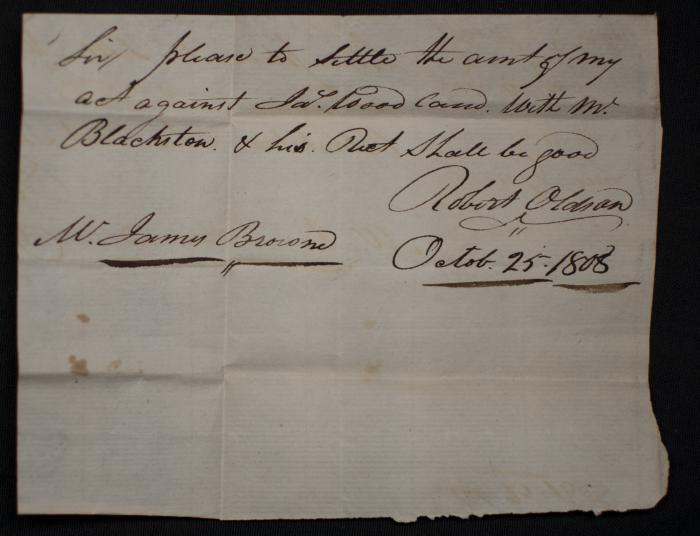 Sir/ please to settle the amt of my
act against Jas. Wood land. With Mr.
Blackston. & his. Rect shall be good
Robert Oldson
Mr. James Browne
Octob. 25. 1808